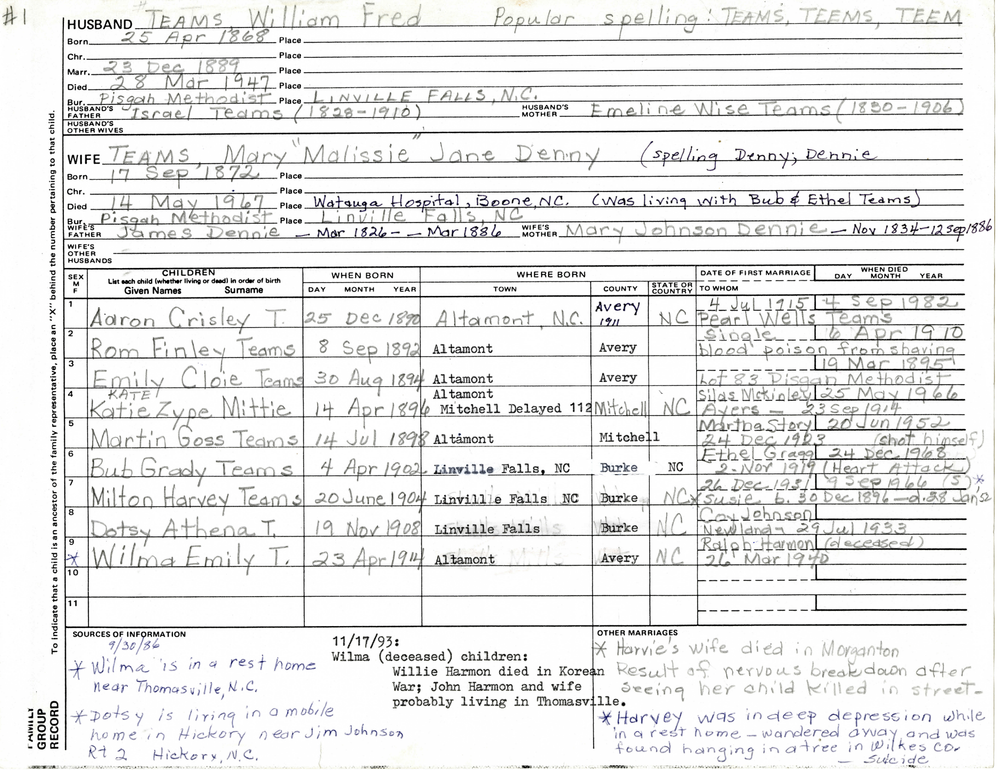 #1
HUSBAND TEAMS, William Fred Popular spelling: TEAMS, TEEMS, TEEM
Born 25 Apr 1868 Place
Chr. Place
Marr. 23 Dec 1889 Place
Died 28 Mar 1947 Place
Bur. Pisgah Methodist Place LINVILLE FALLS, N.C.
HUSBAND'S FATHER Israel Teams (1828-1910) HUSBAND'S MOTHER Emeline Wise Teams (1830-1906)
HUSBAND'S OTHER WIVES
WIFE TEAMS, Mary "Malissie" Jane Denny (spelling Denny; Dennie
Born 17 Sep 1872 Place
Chr. Place
Died 14 May 1967 Place Watauga Hospital, Boone, NC. (Was living with Bub & Ethel Teams)
Bur. Pisgah Methodist Place Linville Falls, NC
WIFE'S FATHER James Dennie — Mar 1826 — — Mar 1886 WIFE'S MOTHER Mary Johnson Dennie — Nov 1834-12 Sep 1886
WIFE'S OTHER HUSBANDS
SEX M F CHILDREN List each child (whether living or dead) in order of birth Given Names Surname WHEN BORN DAY MONTH YEAR WHERE BORN TOWN COUNTY STATE OR COUNTRY DATE OF FIRST MARRIAGE TO WHOM WHEN DIED DAY MONTH YEAR
1 Aaron Crisley T. 25 Dec 1890 Altamont, N.C. Avery 1911 NC 4 Jul 1715 4 Sep 1982
Pearl Wells Teams
2 Rom Finley Teams 8 Sep 1892 Altamont Avery Single 6 Apr 1910
blood poison from shaving
3 Emily Cloie Teams 30 Aug 1894 Altamont Avery 19 Mar 1895
Lot 83 Pisgah Methodist
4 KATE! Katie Zype Mittie 14 Apr 1896 Altamont Mitchell Delayed 112 Mitchell NC Silas McKinley 25 May 1966
Ayers — 23 Sep 1914
5 Martin Goss Teams 14 Jul 1898 Altamont Mitchell Martha Story 20 Jun 1952
24 Dec 1923 (shot himself)
6 Bub Grady Teams 4 Apr 1902 Linville Falls, NC Burke NC Ethel Gragg 24 Dec 1968
2-Nov 1919 (Heart Attack)
7 Milton Harvey Teams 20 June 1904 Linville Falls NC Burke NC 26 Dec 1931 9 Sep 1966 (S) *
* Susie b. 30 Dec 1896 — d. 28 Jan 52
8 Dotsy Athena T. 19 Nov 1908 Linville Falls Burke NC Coy Johnson
Newland 29 Jul 1933
9 * Wilma Emily T. 23 Apr 1914 Altamont Avery NC Ralph Harmon (deceased)
26 Mar 1940
10
11
To indicate that a child is an ancestor of the family representative, place an "X" behind the number pertaining to that child.
FAMILY GROUP RECORD
SOURCES OF INFORMATION
9/30/86
* Wilma is in a rest home
near Thomasville, N.C.
* Dotsy is living in a mobile
home in Hickory near Jim Johnson
Rt 2 Hickory, N.C.
11/17/93:
Wilma (deceased) children:
Willie Harmon died in Korean
War; John Harmon and wife
probably living in Thomasville.
OTHER MARRIAGES
* Harvie's wife died in Morganton
Result of nervous breakdown after
seeing her child killed in street-
* Harvey was in deep depression while
in a rest home — wandered away and was
found hanging in a tree in Wilkes Co.
— suicide